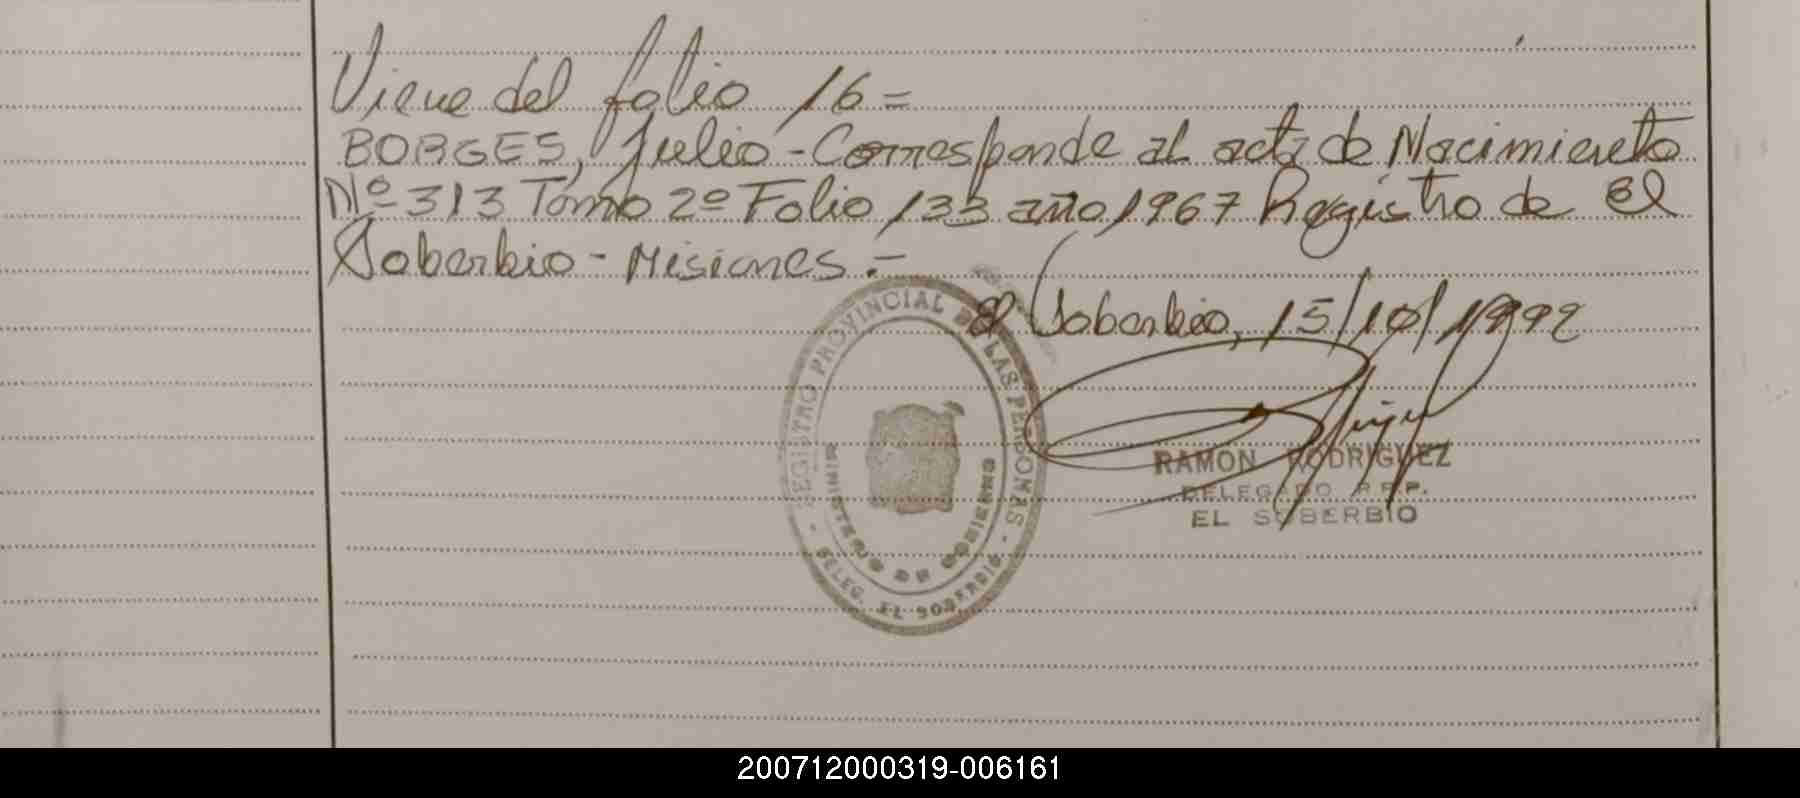 Viene del folio 16=
BORGES, Julio - Corresponde al acta de Nacimiento
Nº 313 Tomo 2º Folio 133 año 1967 Registro de El
Soberbio - Misiones.-
El Soberbio, 15/10/1992
REGISTRO PROVINCIAL DE LAS PERSONAS
MINISTERIO DE GOBIERNO
- DELEG. EL SOBERBIO -
RAMON RODRIGUEZ
DELEGADO R.P.P.
EL SOBERBIO
200712000319-006161